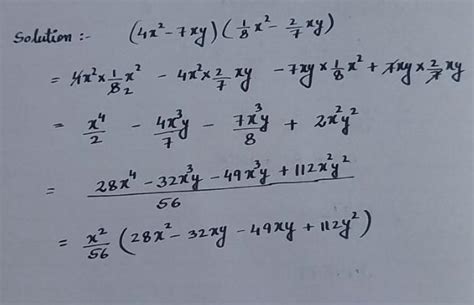 Solution :- (4x²-7xy)(1/8 x² - 2/7 xy)
= 4x² × 1/8 x² - 4x² × 2/7 xy - 7xy × 1/8 x² + 7xy × 2/7 xy
2
= x⁴/2 - 4x³y/7 - 7x³y/8 + 2x²y²
= 28x⁴ - 32x³y - 49x³y + 112x²y² / 56
= x²/56 (28x² - 32xy - 49xy + 112y²)